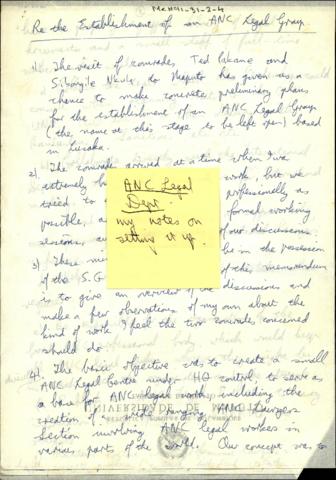 McH41-31-2-4
Re the Establishment of an ANC Legal Group
1) The visit of comrades, Ted Pekane and
Sibongile Nkula, to Maputo has given us a
chance to make concrete preliminary plans
for the establishment of an ANC Legal Group
(the name at this stage to be left open) based
in Lusaka.
2) The comrades arrived at a time when I was
extremely work, but we
tried to professionally as
possible, formed working
sessions, of our discussions.
3) These be in the possession
of the S.G of this memorandum
is to give an overview of the discussions and
make a few observations of my own about the
kind of work I feel the two comrades concerned
should do.
4) The basic objective was to create a small
ANC Legal Centre under HQ control to serve as
a base for ANC legal work, including the
creation of a wide ranging ANC Lawyers
Section involving ANC legal workers in
various parts of the world. Our concept was to
ANC Legal
Dept.
my notes on
setting it up.